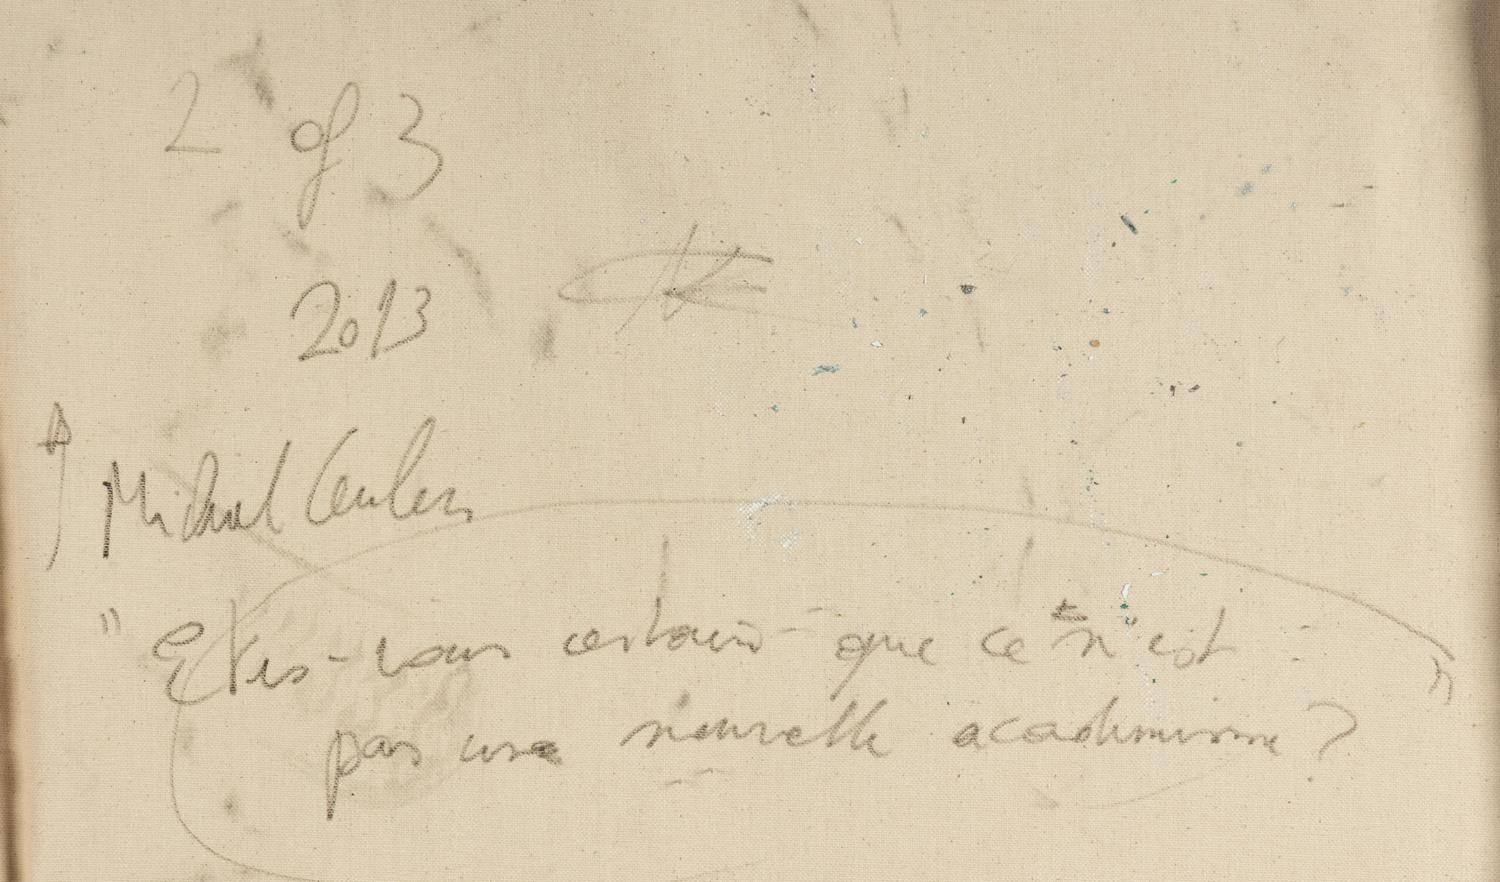 2 of 3
2013
Michael Ceulers
" Etes-vous certain que ce n'est "
pas une nouvelle academisme ?